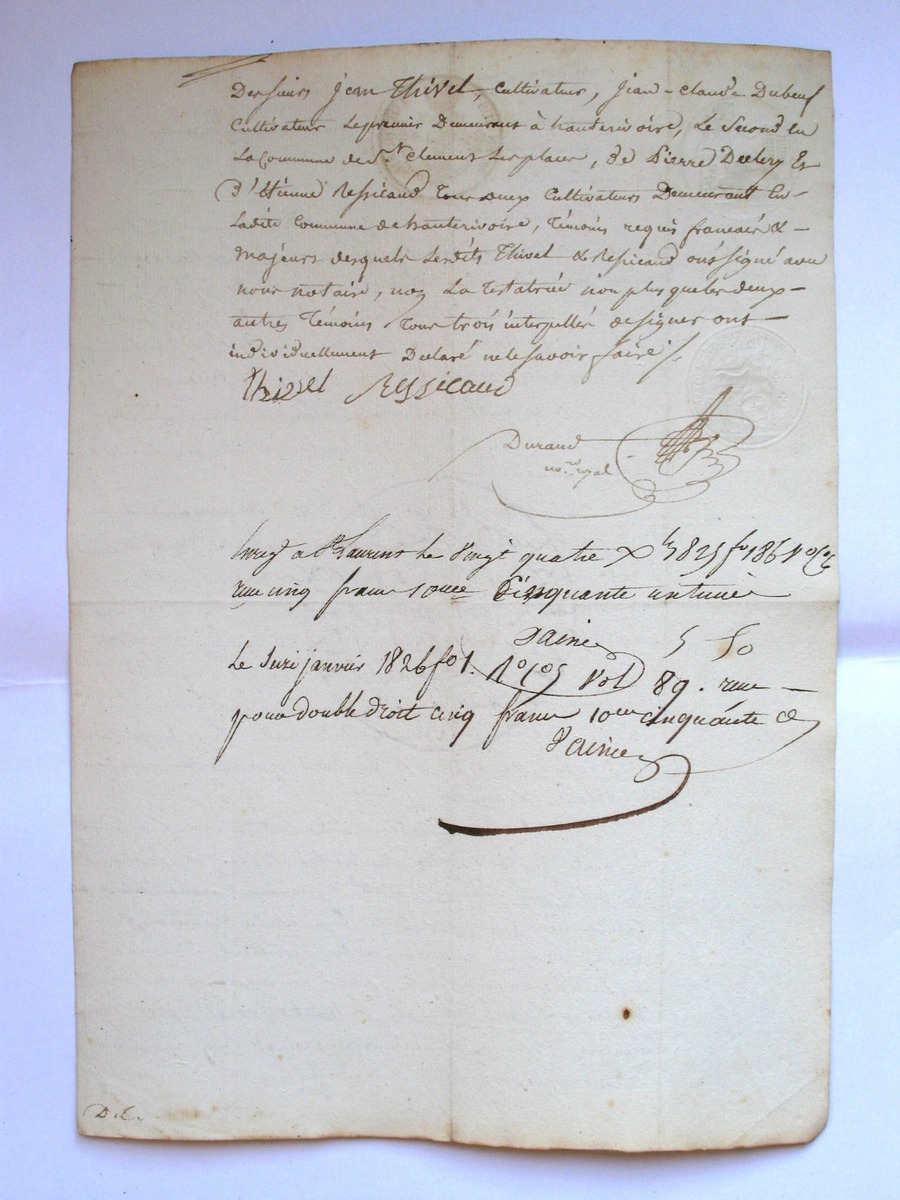 Des sieurs jean Thivel, Cultivateur, jean-claude Dubeuf
Cultivateur Le premier Demeurant à hauterivoire, Le Second en
La Commune de St. Clement Les places, de Pierre
D'Etienne Ressicaud Tous deux Cultivateurs Demeurant En
Ladite Commune de hauterivoire, Témoins requis francais &
majeurs desquels Lesdits Thivel & Ressicaud ont signé avec
nous notaire, non La Testatrice non plus que les deux
autres Témoins Tous trois interpellés de signer ont
individuellement Declaré ne le savoir faire
thivel Ressicaud
Durand
nore. royal
a St Laurent Le Vingt quatre 1825 fo 186
cinq francs Cinquante
5 50
Le janvier 1826 fo 1. Vol 89.
pour double droit cinq francs cinquante c
D.C.